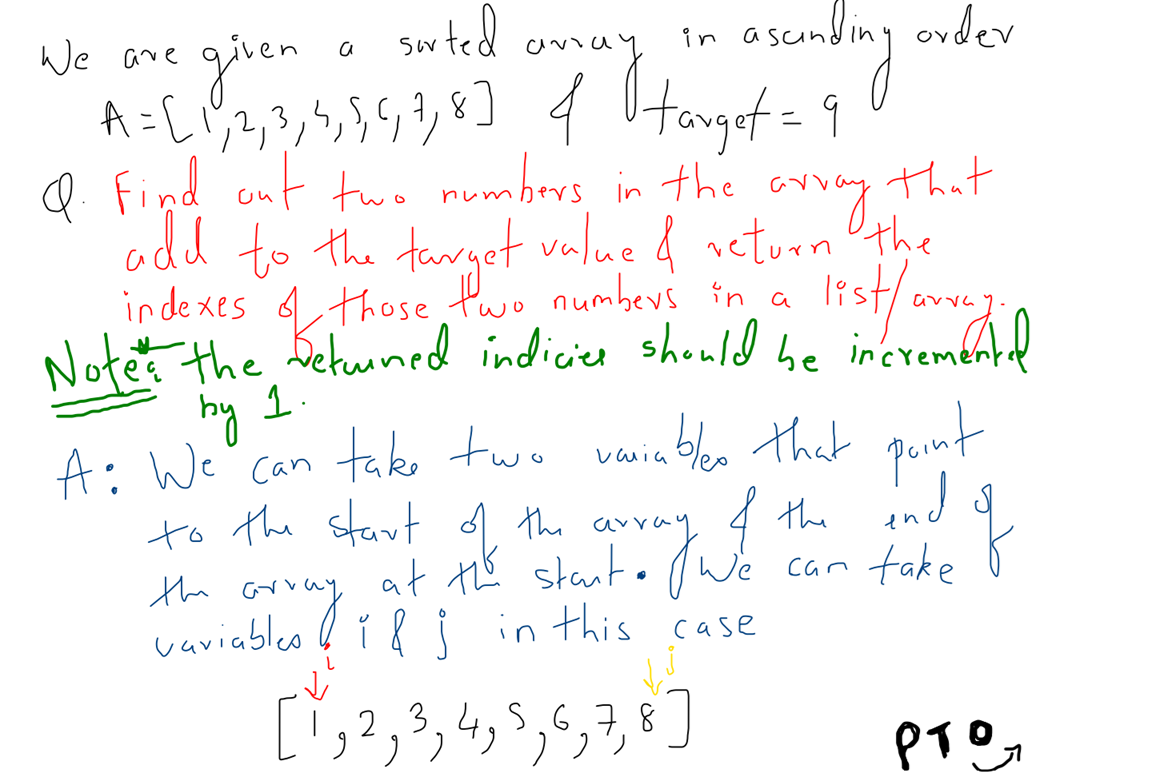 We are given a sorted array in ascending order
A=[1,2,3,4,5,6,7,8] & target = 9
Q. Find out two numbers in the array that
add to the target value & return the
indexes of those two numbers in a list/array.
Note: the returned indicies should be incremented
by 1.
A: We can take two variables that point
to the start of the array & the end of
the array at the start. We can take
variables i & j in this case
i j
[1,2,3,4,5,6,7,8]
PTO